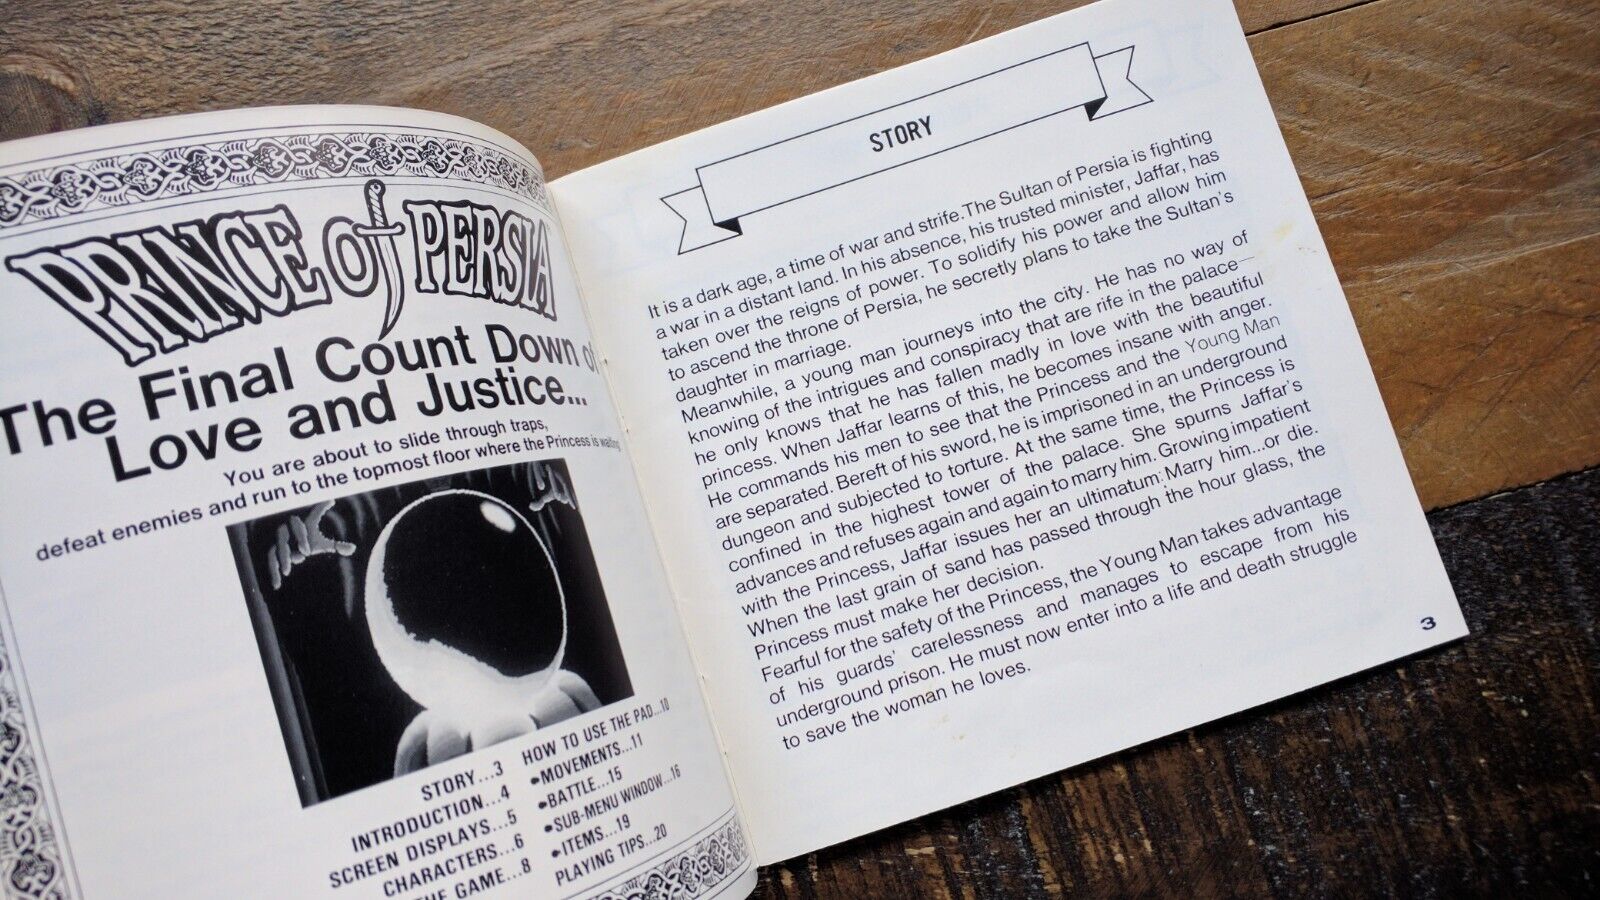 PRINCE of PERSIA
The Final Count Down of
Love and Justice...
You are about to slide through traps,
defeat enemies and run to the topmost floor where the Princess is waiting
STORY...3
INTRODUCTION...4
SCREEN DISPLAYS...5
CHARACTERS...6
THE GAME...8
HOW TO USE THE PAD...10
•MOVEMENTS...11
•BATTLE...15
•SUB-MENU WINDOW...16
•ITEMS...19
PLAYING TIPS...20
STORY
It is a dark age, a time of war and strife.The Sultan of Persia is fighting
a war in a distant land. In his absence, his trusted minister, Jaffar, has
taken over the reigns of power. To solidify his power and allow him
to ascend the throne of Persia, he secretly plans to take the Sultan's
daughter in marriage.
Meanwhile, a young man journeys into the city. He has no way of
knowing of the intrigues and conspiracy that are rife in the palace—
he only knows that he has fallen madly in love with the beautiful
princess. When Jaffar learns of this, he becomes insane with anger.
He commands his men to see that the Princess and the Young Man
are separated. Bereft of his sword, he is imprisoned in an underground
dungeon and subjected to torture. At the same time, the Princess is
confined in the highest tower of the palace. She spurns Jaffar's
advances and refuses again and again to marry him. Growing impatient
with the Princess, Jaffar issues her an ultimatum: Marry him...or die.
When the last grain of sand has passed through the hour glass, the
Princess must make her decision.
Fearful for the safety of the Princess, the Young Man takes advantage
of his guards' carelessness and manages to escape from his
underground prison. He must now enter into a life and death struggle
to save the woman he loves.
3